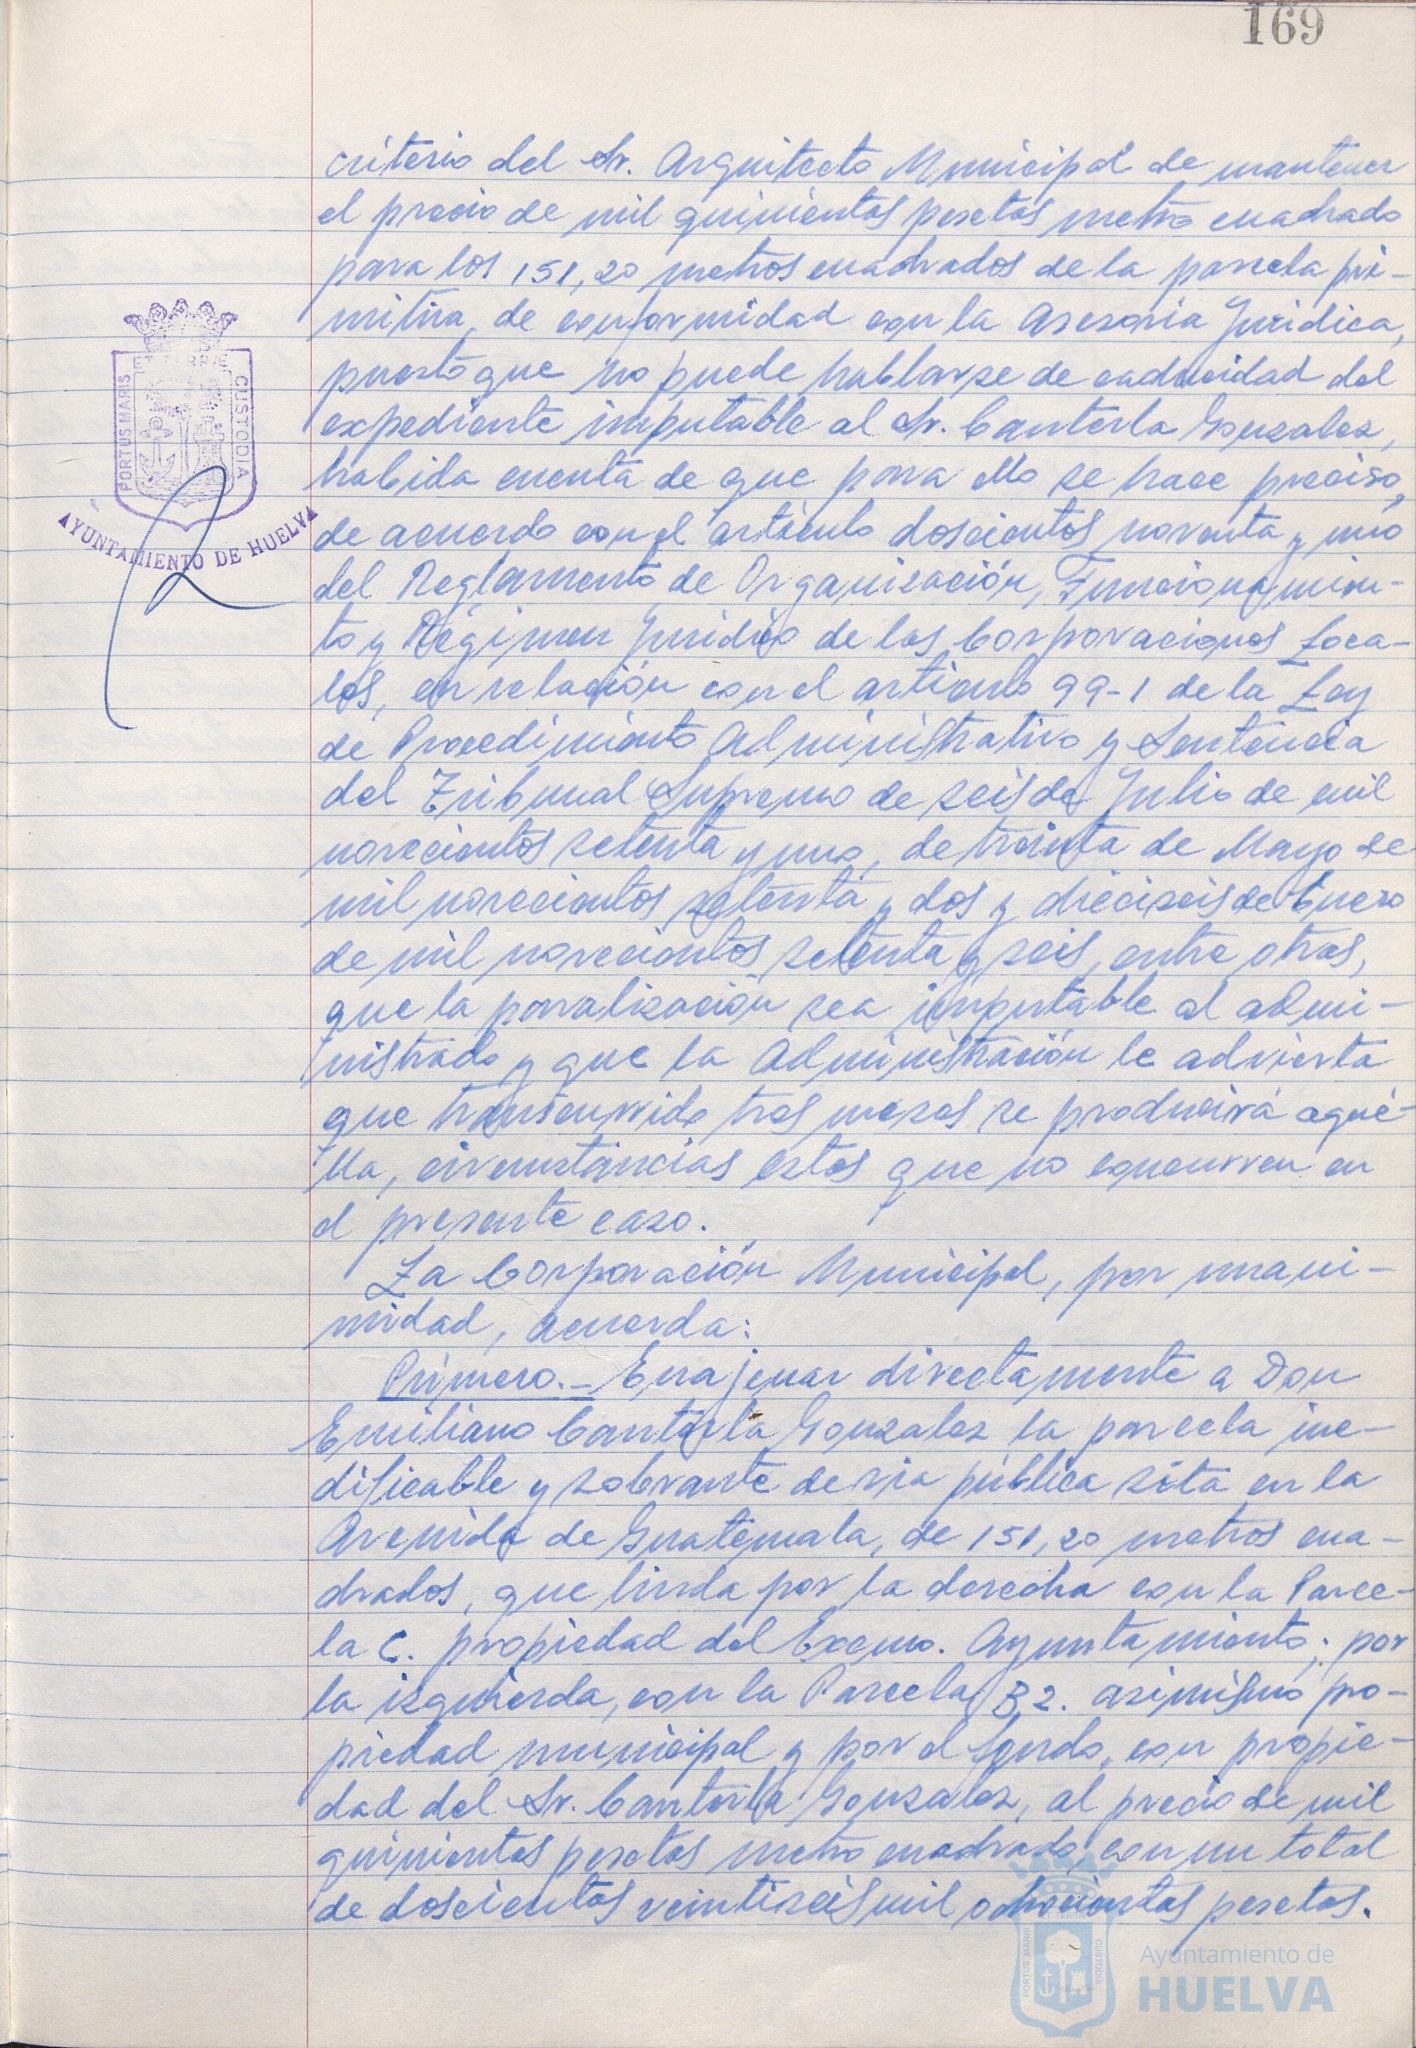 169
criterio del Sr. Arquitecto Municipal de mantener
el precio de mil quinientas pesetas metro cuadrado
para los 151,20 metros cuadrados de la parcela pri-
mitiva, de conformidad con la Asesoria Juridica,
puesto que no puede hablarse de caducidad del
expediente imputable al Sr. Canterla Gonzalez,
habida cuenta de que para ello se hace preciso,
de acuerdo con el articulo doscientos noventa y uno
del Reglamento de Organización, Funcionamien-
to y Régimen Juridico de las Corporaciones Loca-
les, en relación con el articulo 99-1 de la Ley
de Procedimiento Administrativo y Sentencia
del Tribunal Supremo de seis de Julio de mil
novecientos setenta y uno, de treinta de Mayo de
mil novecientos setenta y dos y dieciseis de Enero
de mil novecientos setenta y seis, entre otras,
que la paralización sea imputable al admi-
nistrado y que la Administración le advierta
que transcurrido tres meses se producirá aqué-
lla, circunstancias estas que no concurren en
el presente caso.
La Corporación Municipal, por unani-
midad, acuerda:
Primero.- Enajenar directamente a Don
Emiliano Canterla Gonzalez la parcela ine-
dificable y sobrante de via pública sita en la
Avenida de Guatemala, de 151,20 metros cua-
drados, que linda por la derecha con la Parce-
la C. propiedad del Excmo. Ayuntamiento; por
la izquierda, con la Parcela B2. asimismo pro-
piedad municipal y por el fondo, con propie-
dad del Sr. Canterla Gonzalez, al precio de mil
quinientas pesetas metro cuadrado, con un total
de doscientas veintiseis mil ochocientas pesetas.
PORTUS MARIS
CUSTODIA
AYUNTAMIENTO DE HUELVA
PORTUS MARIS
CUSTODIA
Ayuntamiento de
HUELVA